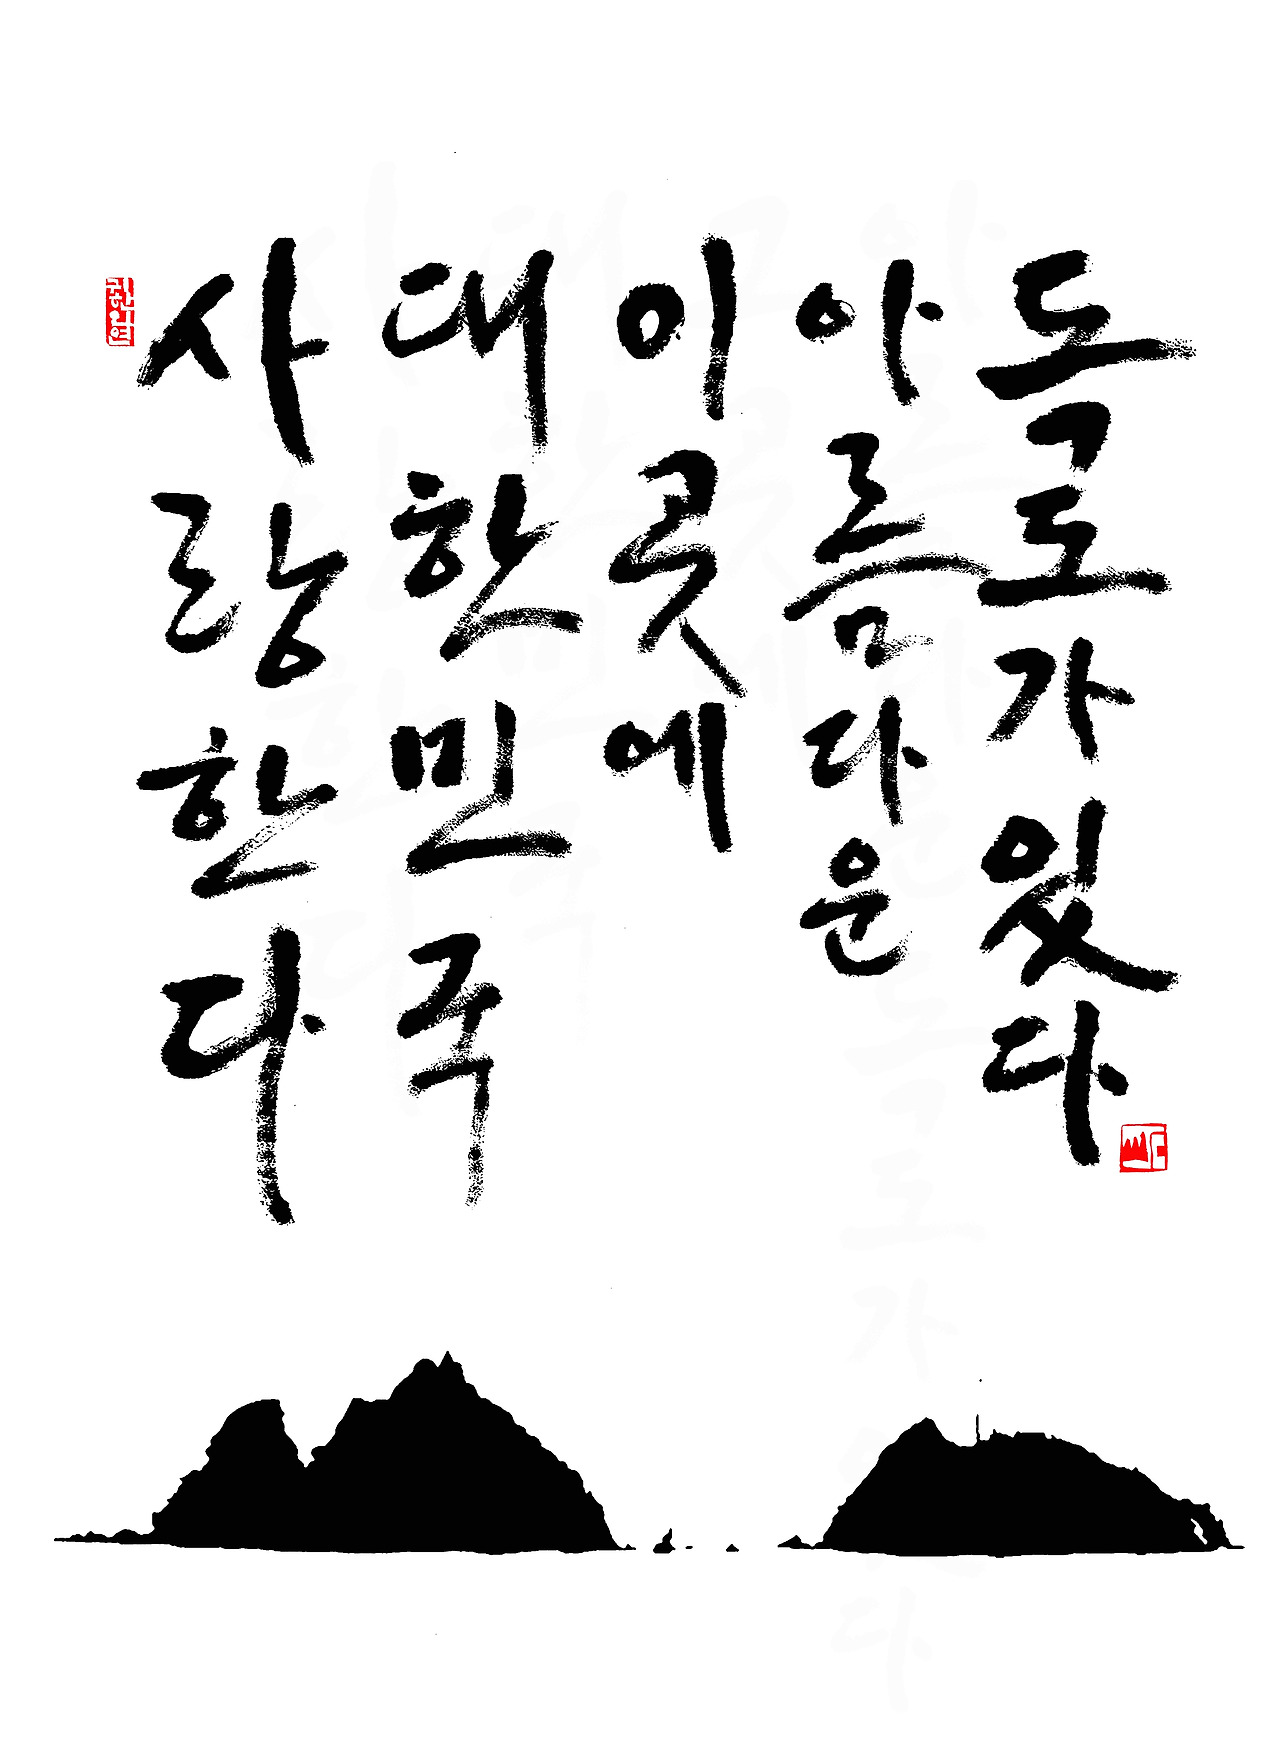 사랑한다
대한민국
이곳에
아름다운
독도가 있다